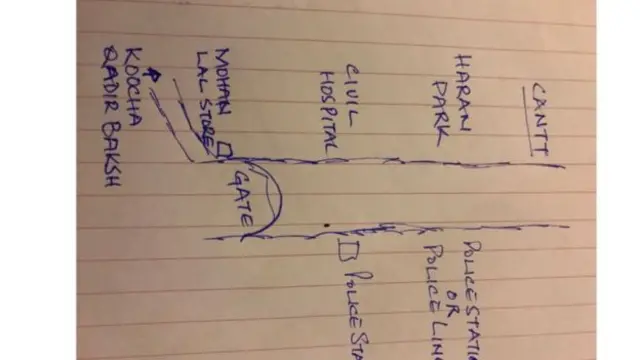 CANTT
HARAN
PARK
CIVIL
HOSPITAL
MOHAN
LAL STORE
KOOCHA
QADIR BAKSH
GATE
POLICE STATIO
OR
POLICE LIN
POLICE STA